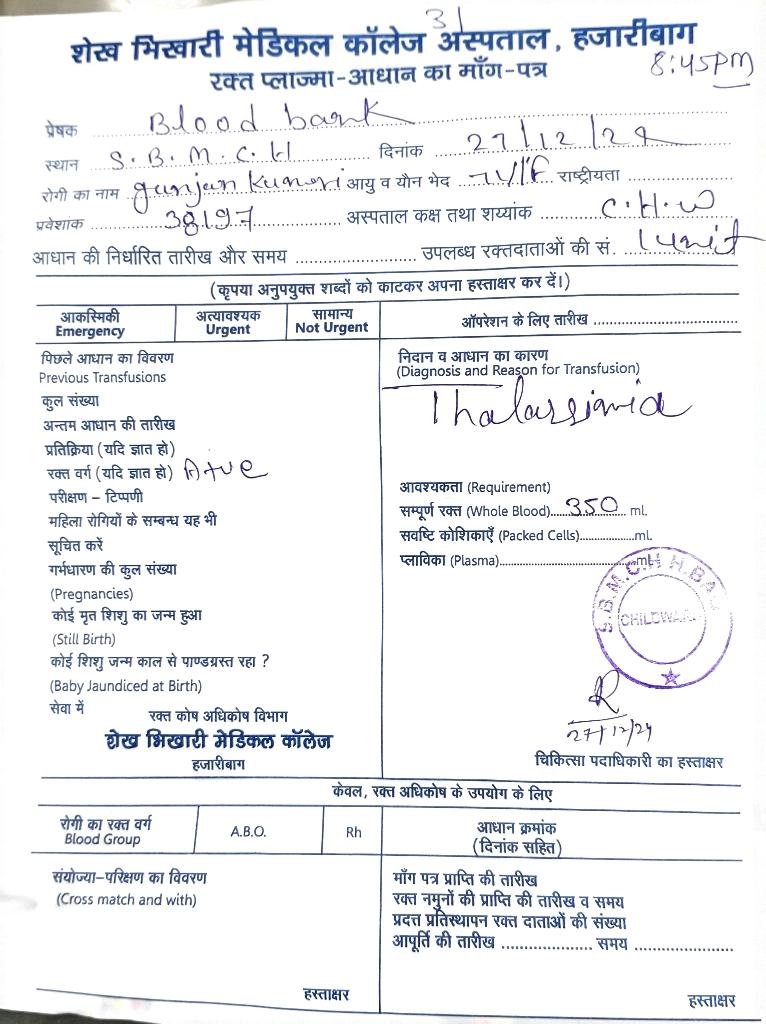 31
शेख भिखारी मेडिकल कॉलेज अस्पताल, हजारीबाग
रक्त प्लाज्मा-आधान का माँग-पत्र
8:45PM
प्रेषक Blood bank
स्थान S.B.M.C.H दिनांक 27/12/24
रोगी का नाम gunjan Kumari आयु व यौन भेद 7Y/F राष्ट्रीयता
प्रवेशांक 38197 अस्पताल कक्ष तथा शय्यांक C.H.W
आधान की निर्धारित तारीख और समय उपलब्ध रक्तदाताओं की सं. 1 unit
(कृपया अनुपयुक्त शब्दों को काटकर अपना हस्ताक्षर कर दें।)
आकस्मिकी अत्यावश्यक सामान्य
Emergency Urgent Not Urgent
ऑपरेशन के लिए तारीख
पिछले आधान का विवरण
Previous Transfusions
कुल संख्या
अन्तम आधान की तारीख
प्रतिक्रिया (यदि ज्ञात हो)
रक्त वर्ग (यदि ज्ञात हो) A+ve
परीक्षण – टिप्पणी
महिला रोगियों के सम्बन्ध यह भी
सूचित करें
गर्भधारण की कुल संख्या
(Pregnancies)
कोई मृत शिशु का जन्म हुआ
(Still Birth)
कोई शिशु जन्म काल से पाण्डग्रस्त रहा ?
(Baby Jaundiced at Birth)
सेवा में
रक्त कोष अधिकोष विभाग
शेख भिखारी मेडिकल कॉलेज
हजारीबाग
निदान व आधान का कारण
(Diagnosis and Reason for Transfusion)
Thalassimia
आवश्यकता (Requirement)
सम्पूर्ण रक्त (Whole Blood) 350 ml.
सवष्टि कोशिकाएँ (Packed Cells) ml.
प्लाविका (Plasma) ml.
S.B.M.C.H H.BAG
CHILDWAR
27/12/24
चिकित्सा पदाधिकारी का हस्ताक्षर
केवल, रक्त अधिकोष के उपयोग के लिए
रोगी का रक्त वर्ग
Blood Group
A.B.O. Rh
आधान क्रमांक
(दिनांक सहित)
संयोज्या-परिक्षण का विवरण
(Cross match and with)
माँग पत्र प्राप्ति की तारीख
रक्त नमुनों की प्राप्ति की तारीख व समय
प्रदत्त प्रतिस्थापन रक्त दाताओं की संख्या
आपूर्ति की तारीख समय
हस्ताक्षर
हस्ताक्षर